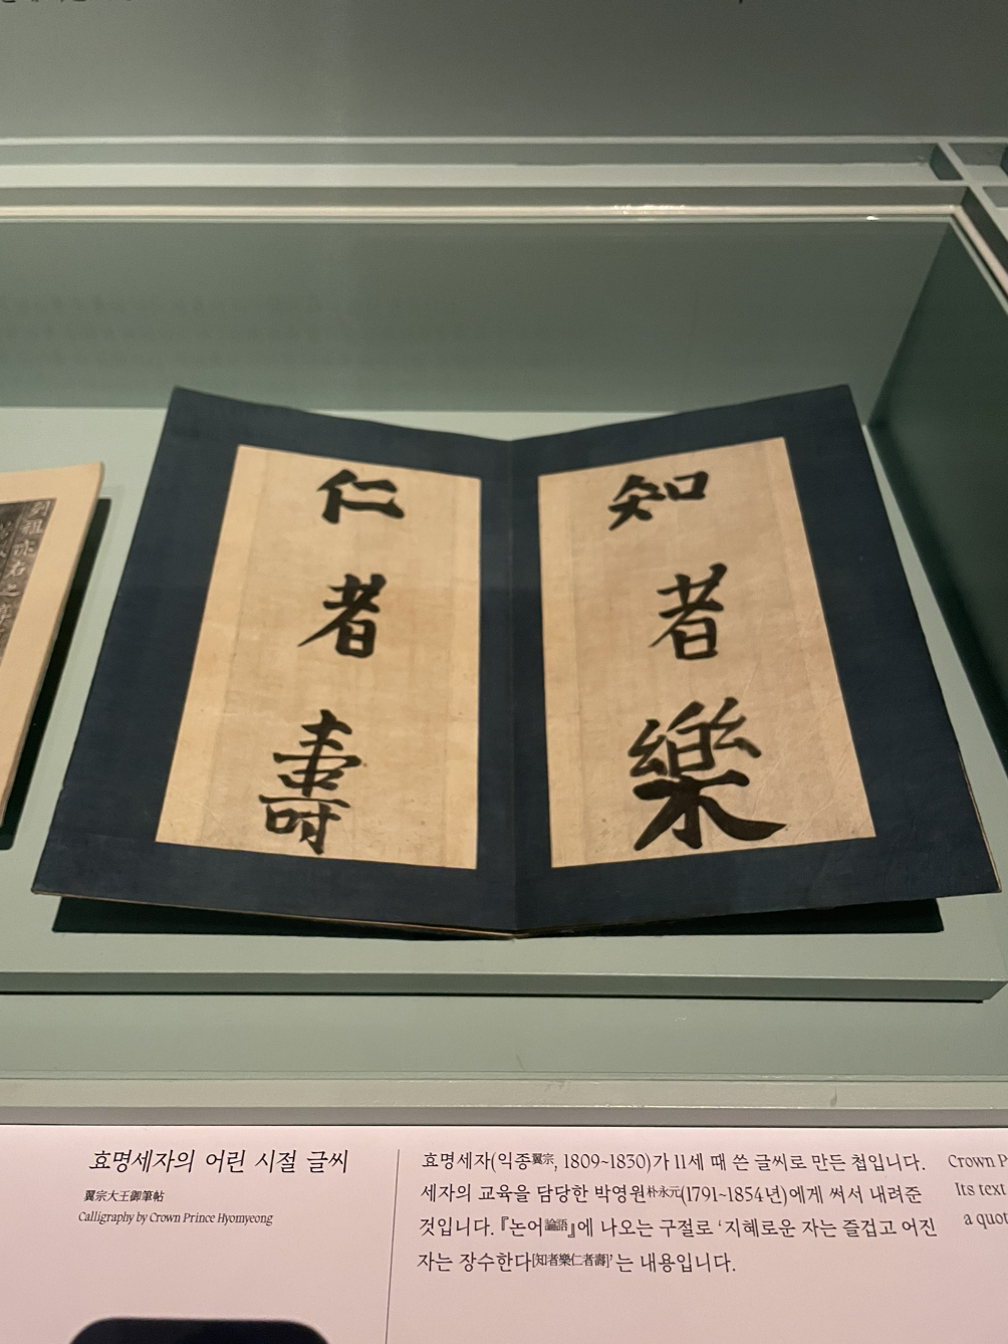 知者樂
仁者壽
효명세자의 어린 시절 글씨
翼宗大王御筆帖
Calligraphy by Crown Prince Hyomyeong
효명세자(익종翼宗, 1809~1830)가 11세 때 쓴 글씨로 만든 첩입니다.
세자의 교육을 담당한 박영원朴永元(1791~1854년)에게 써서 내려준
것입니다. 『논어論語』에 나오는 구절로 ‘지혜로운 자는 즐겁고 어진
자는 장수한다[知者樂仁者壽]’는 내용입니다.
Crown P
Its text
a quot